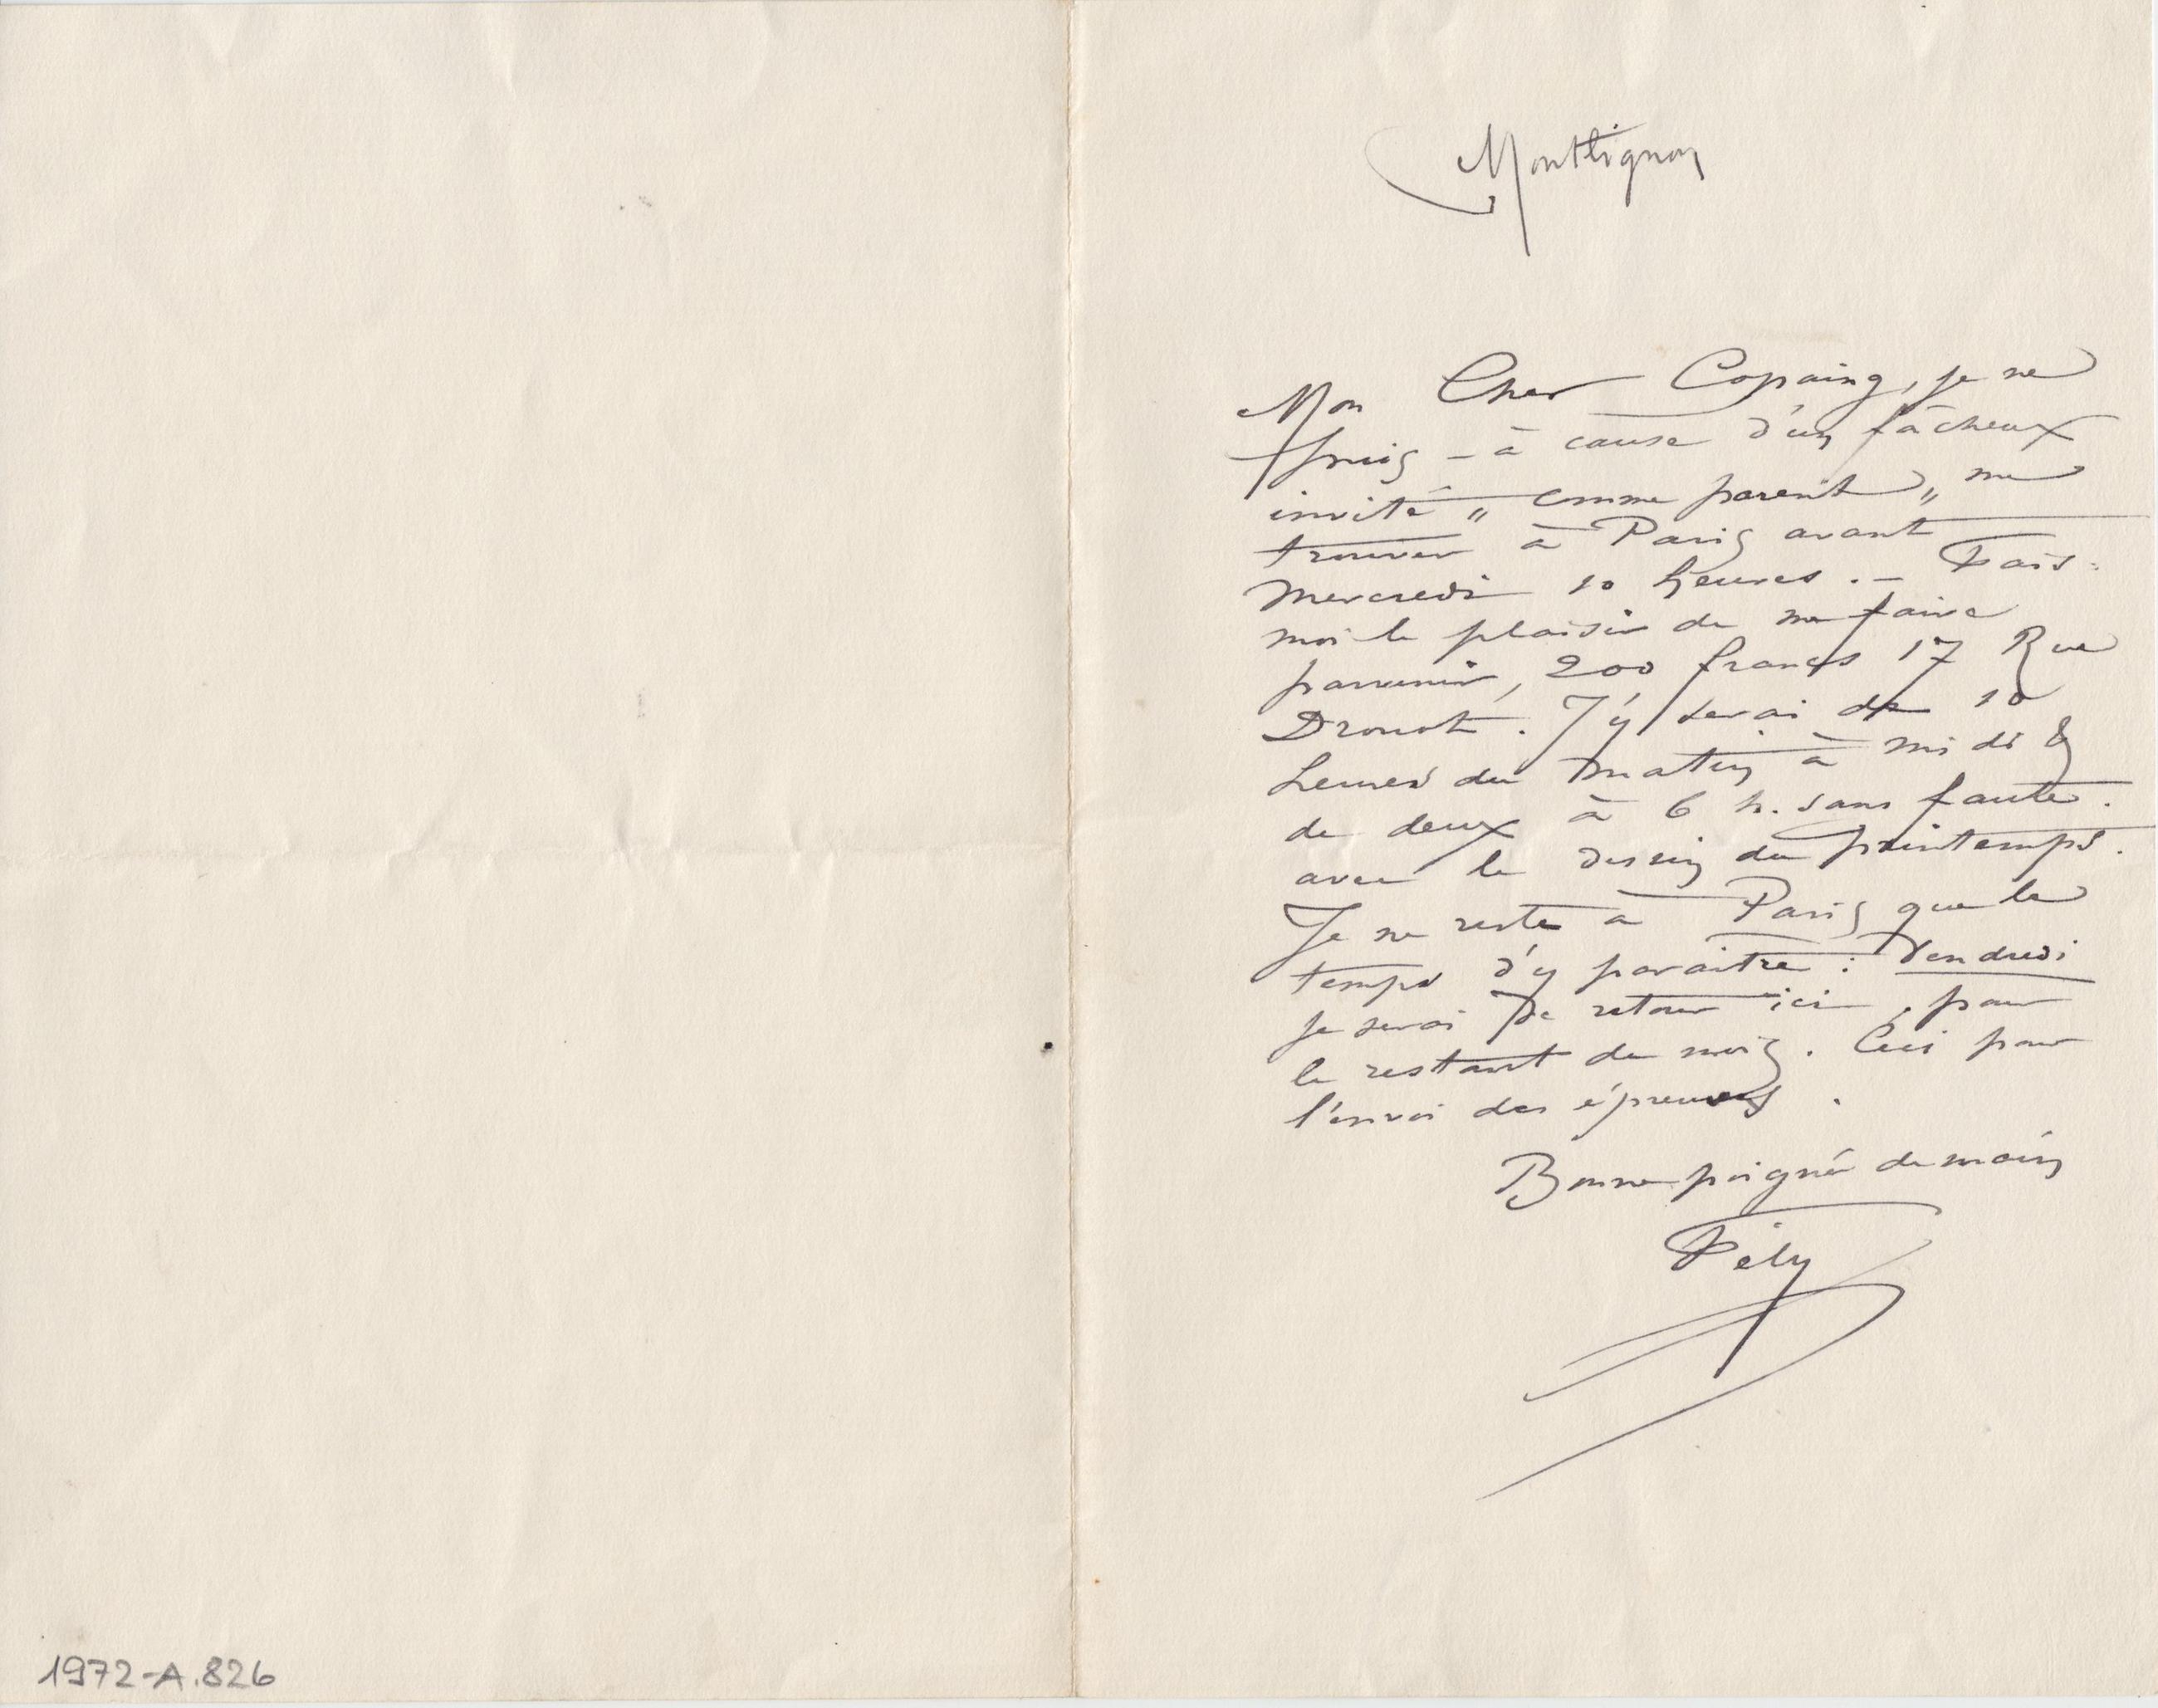 Montlignon
Mon Cher Copaing, je ne
puis – à cause d'un fâcheux
invité „ comme parent „ me
trouver à Paris avant
mercredi 10 heures. – Fais-
moi le plaisir de me faire
parvenir, 200 francs 17 Rue
Drouot. J'y serai de 10
heures du matin à midi &
de deux à 6 h. sans faute.
avec le dessin du printemps.
Je ne reste à Paris que le
temps d'y paraitre : Vendredi
je serai de retour ici, pour
le restant du mois. Ceci pour
l'envoi des épreuves.
Bonne poignée de main
Fély
1972-A.826